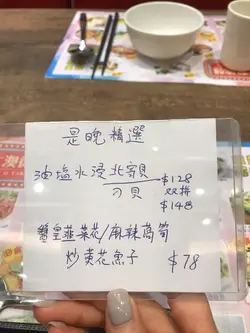 是晚精選
油塩水浸北寄貝 $128
刀貝 双拼
$148
韮菜花/麻辣萵筍
炒黄花魚子 $78